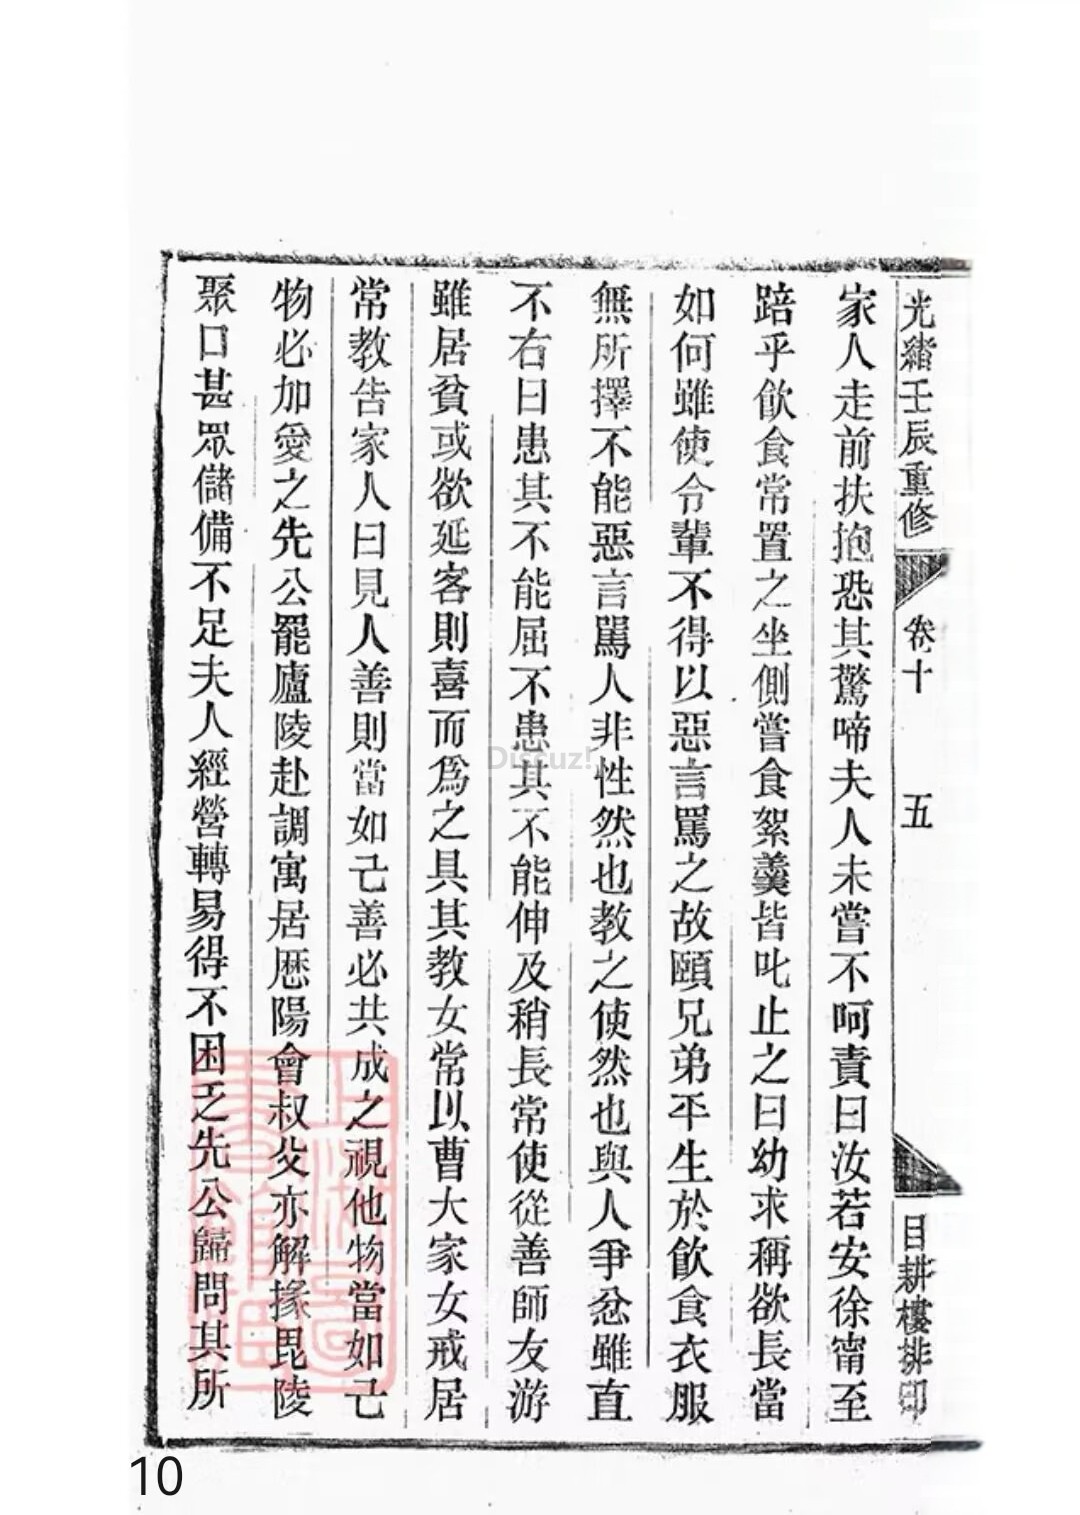 光緖壬辰重修
卷十
五
目耕樓排印
家人走前扶抱恐其驚啼夫人未嘗不呵責曰汝若安徐甯至
踣乎飮食常置之坐側嘗食絮羹皆叱止之曰幼求稱欲長當
如何雖使令輩不得以惡言罵之故頤兄弟平生於飮食衣服
無所擇不能惡言罵人非性然也教之使然也與人爭忿雖直
不右曰患其不能屈不患其不能伸及稍長常使從善師友游
雖居貧或欲延客則喜而爲之具其教女常以曹大家女戒居
常教告家人曰見人善則當如己善必共成之視他物當如己
物必加愛之先公罷廬陵赴調寓居厯陽會叔父亦解掾毘陵
聚口甚眾儲備不足夫人經營轉易得不困乏先公歸問其所
Discuz!
10